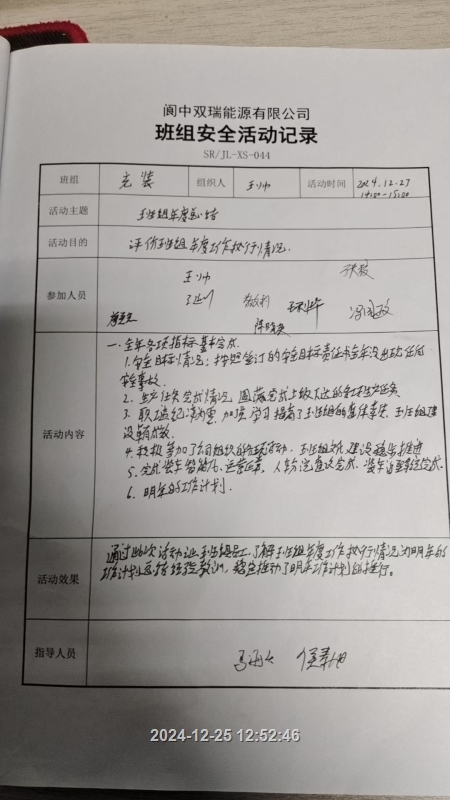 阆中双瑞能源有限公司
班组安全活动记录
SR/JL-XS-044
班组 充装 组织人 王帅 活动时间 2024.12.27
14:00-15:00
活动主题 班组年度总结
活动目的 评价班组年度工作执行情况。
参加人员 王帅
活动内容
一.全年各项指标基本完成.
1.安全目标情况:按照签订的安全目标责任书全年没出现任何
安全事故.
2.生产任务完成情况 圆满完成上级下达的各项生产任务
3.职工遵纪 加强学习提高了班组的整体素质,班组建
设有成效.
4.积极参加了公司组织的各项活动.班组文化建设稳步推进
5.完成装车智能化运营
6.明年的工作计划.
活动效果
通过此次活动让班组员工了解班组年度工作执行情况为明年的
工作计划总结经验教训,稳定推动了明年工作计划的推行。
指导人员
2024-12-25 12:52:46